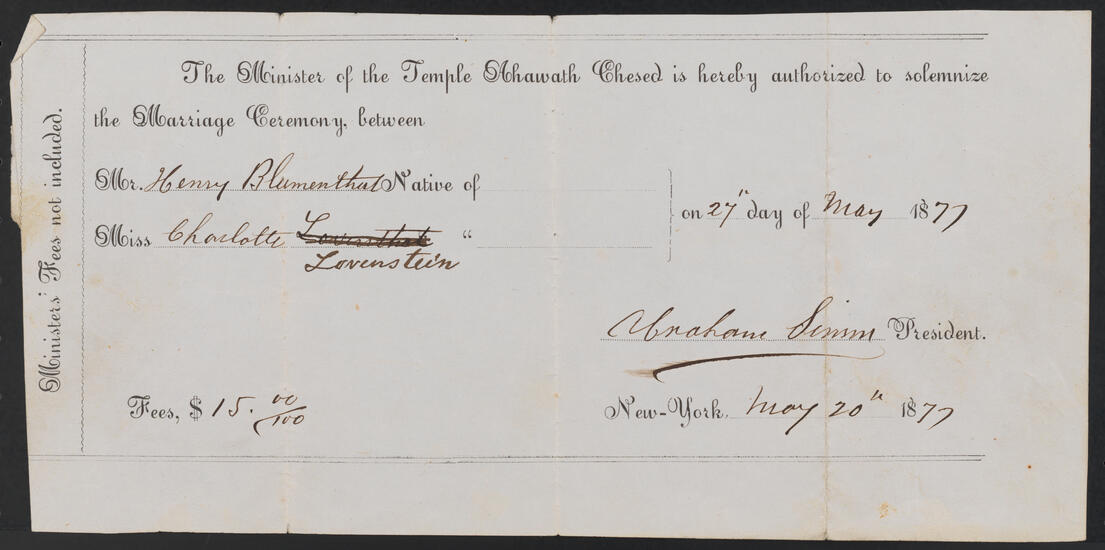 Ministers' Fees not included.
The Minister of the Temple Ahawath Chesed is hereby authorized to solemnize
the Marriage Ceremony, between
Mr. Henry Blumenthal Native of
Miss Charlotte "
Lovenstein
on 27" day of May 1877
Abraham Simm President.
Fees, $ 15. 00/100
New-York, May 20" 1877